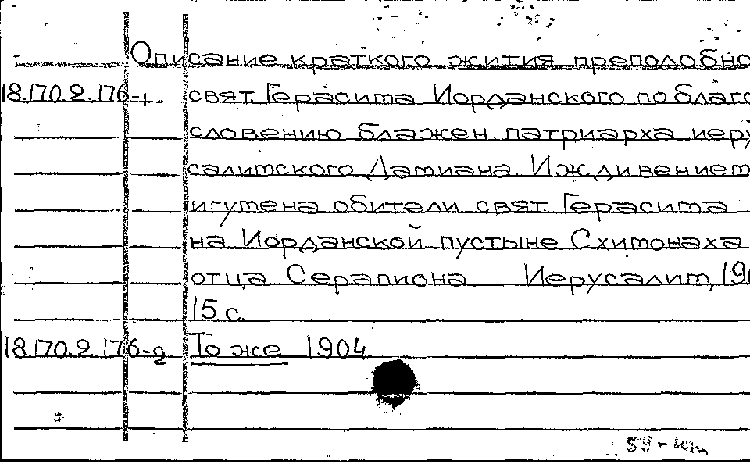 Описание краткого жития преподобно
18.170.2.176-1. свят Герасима Иорданского по благо
словению блажен патриарха иеру
салимского Дамиана. Иждивением
игумена обители свят Герасима
на Иорданской пустыне Схимонаха
отца Серапиона Иерусалим, 19
15 с.
18.170.2.176-2 То же 1904